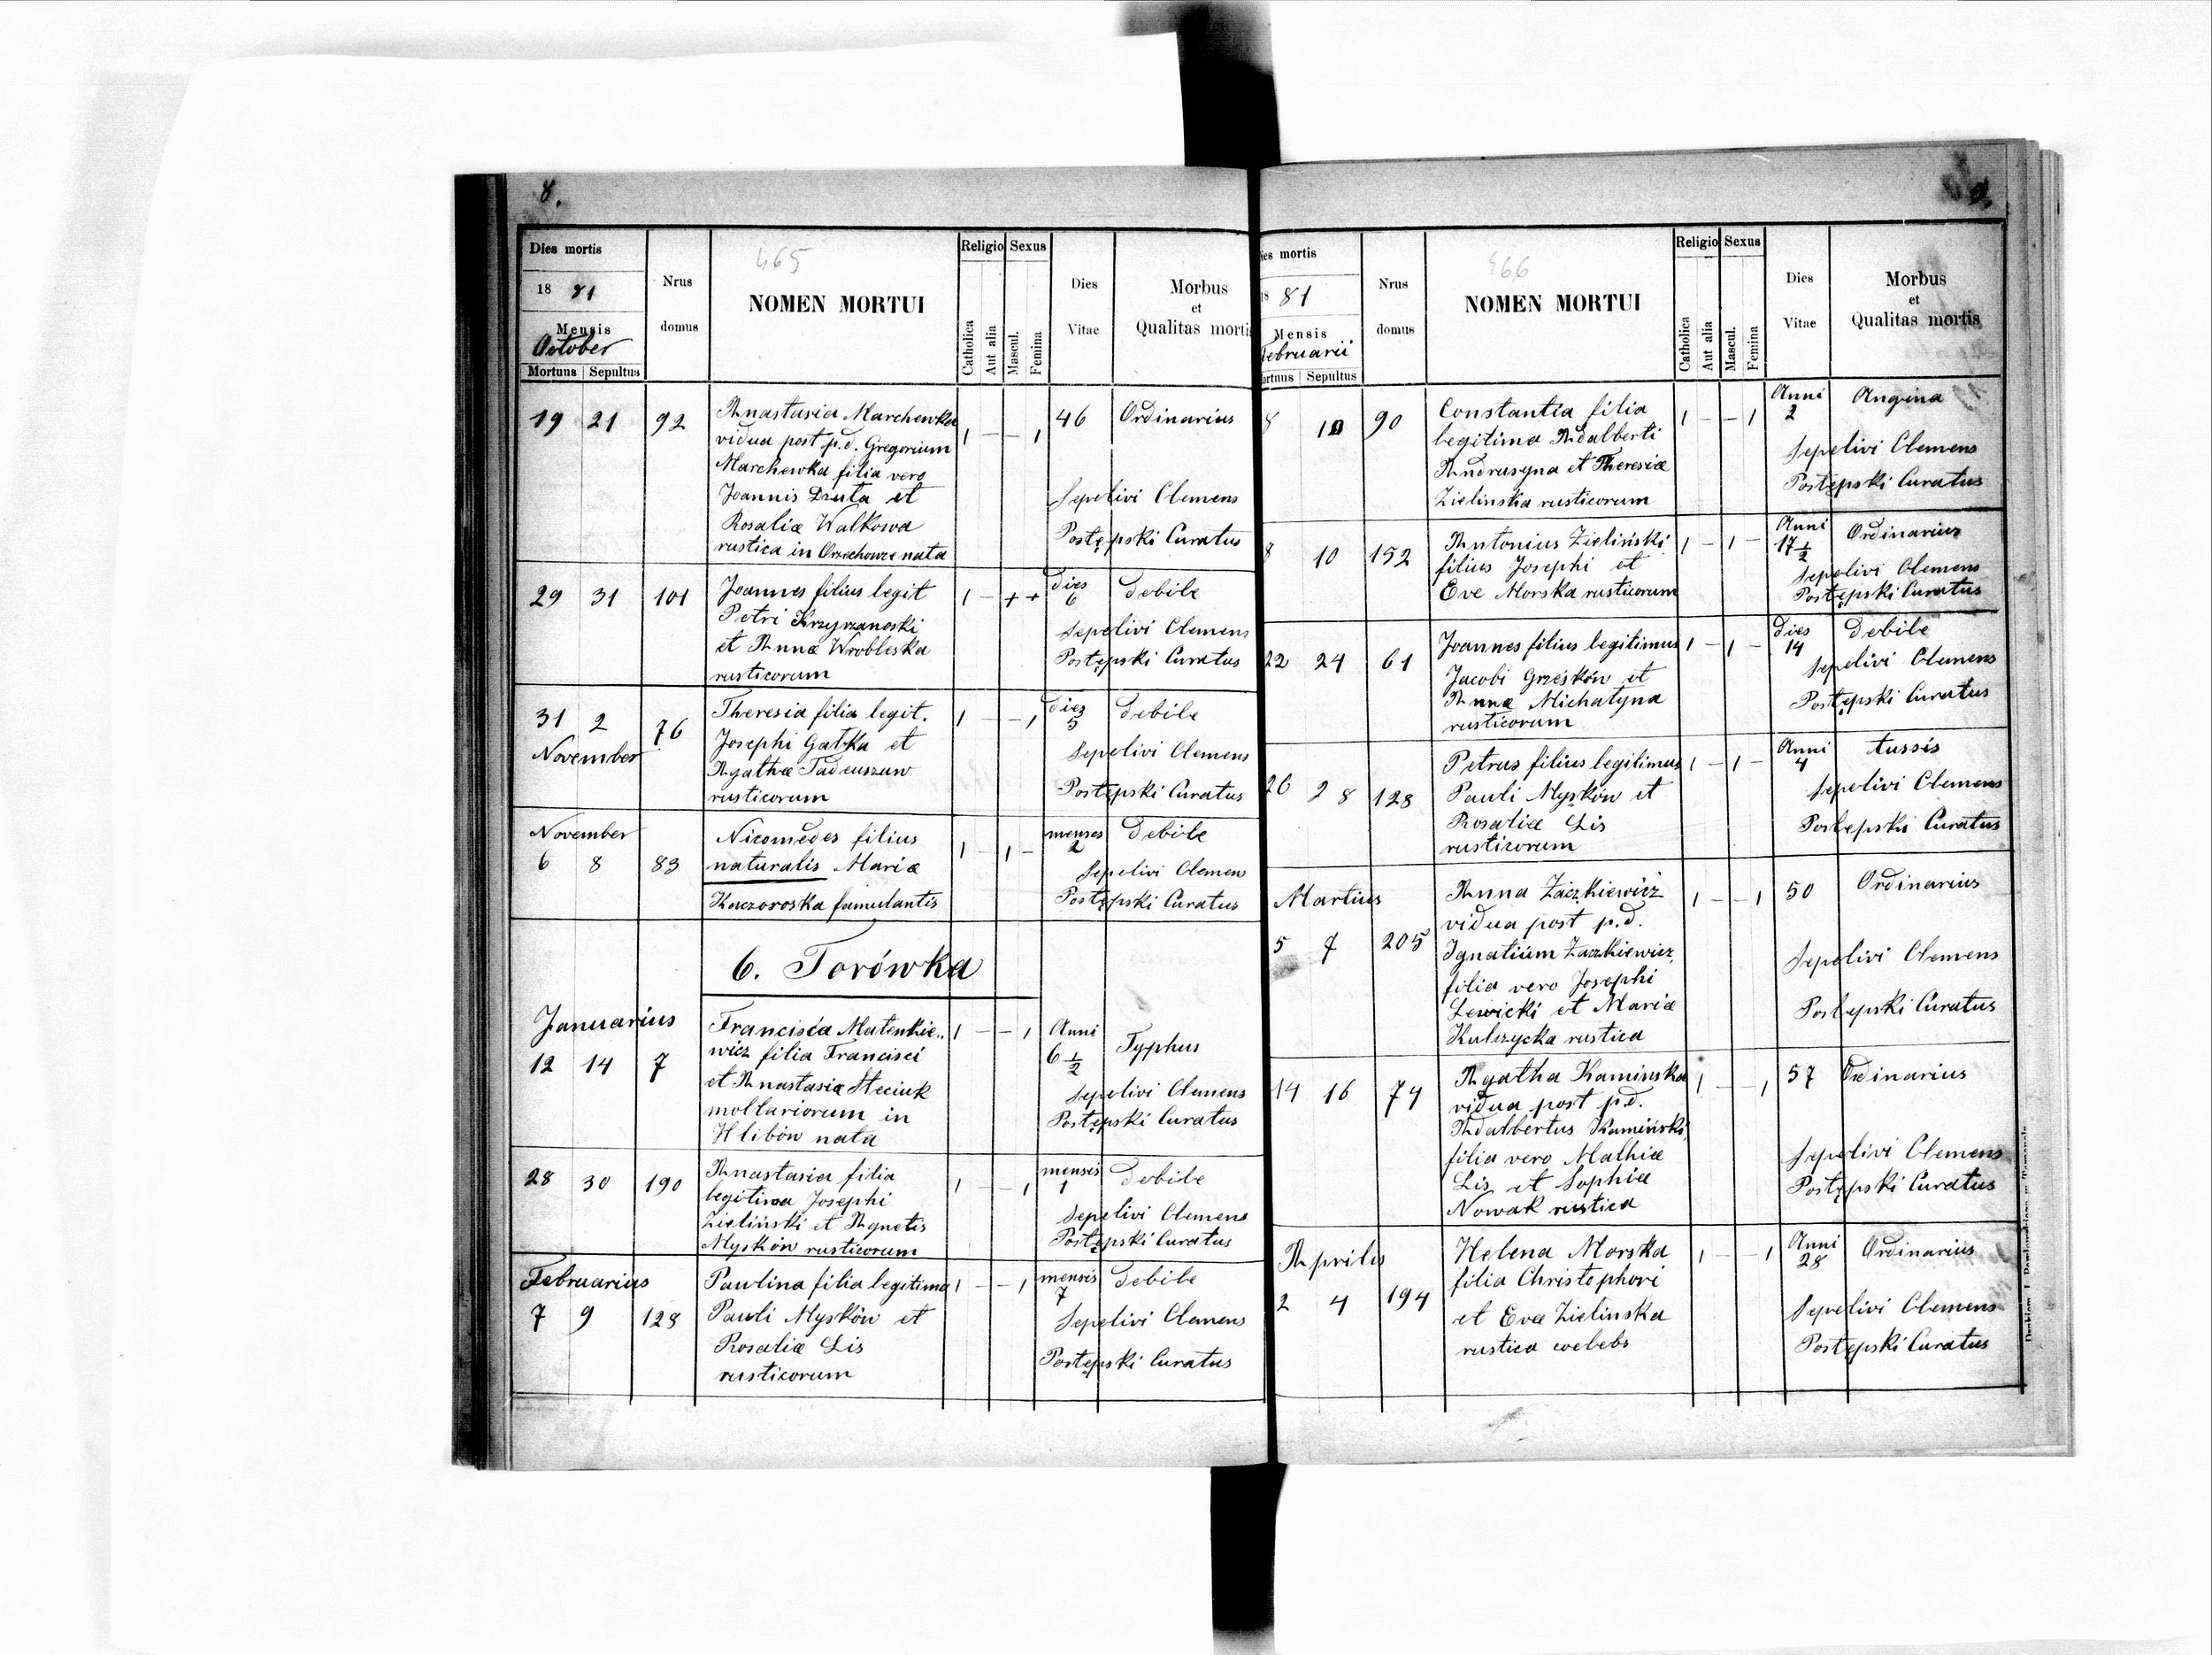 8.
Dies mortis
18 81
Mensis
October
Mortuus Sepultus
Nrus
domus
465
NOMEN MORTUI
Religio Sexus
Catholica
Aut alia
Mascul.
Femina
Dies
Vitae
Morbus
et
Qualitas mortis
19 21 92 Anastasia Marchewka 1 — — 1 46 Ordinarius
vidua post p.d. Gregorium
Marchewka filia vero
Joannis Dzuta et Sepelivi Clemens
Rosaliæ Walkowa
rustica in Orzechowce nata Postępski Curatus
29 31 101 Joannes filius legit 1 — + + dies 6 debile
Petri Krzyrzanoski Sepelivi Clemens
et Annæ Wrobleska Postępski Curatus
rusticorum
31 2 76 Theresia filia legit. 1 — — 1 dies 5 debile
November Josephi Gatka et Sepelivi Clemens
Agathæ Tadeuszuw
rusticorum Postępski Curatus
November Nicomedes filius menses 2 debile
6 8 83 naturalis Mariæ 1 — 1 — Sepelivi Clemens
Kaczoroska famulantis Postępski Curatus
6. Torówka
Januarius
12 14 7 Francisca Matenkie.. 1 — — 1 Anni 6 1/2 Typhus
wicz filia Francisci
et Anastasiæ Steciuk Sepelivi Clemens
mollariorum in Postępski Curatus
Hlibów nata
28 30 190 Anastasia filia 1 — — 1 mensis 1 debile
legitima Josephi
Zieliński et Agnetis Sepelivi Clemens
Myśków rusticorum Postępski Curatus
Februarius Paulina filia legitima 1 — — 1 mensis 7 debile
7 9 128 Pauli Myśków et Sepelivi Clemens
Rosaliæ Lis Postępski Curatus
rusticorum
9.
ies mortis
18 81
Mensis
Februarii
ortuus Sepultus
Nrus
domus
466
NOMEN MORTUI
Religio Sexus
Catholica
Aut alia
Mascul.
Femina
Dies
Vitae
Morbus
et
Qualitas mortis
8 10 90 Constantia filia 1 — — 1 Anni 2 Angina
legitima Adalberti Sepelivi Clemens
Andrusyna et Theresiæ Postępski Curatus
Zielinska rusticorum
8 10 152 Antonius Zieliński 1 — 1 — Anni 17 1/2 Ordinarius
filius Josephi et Sepelivi Clemens
Eve Morska rusticorum Postępski Curatus
22 24 61 Joannes filius legitimus 1 — 1 — dies 14 debile
Jacobi Grześków et Sepelivi Clemens
Annæ Michatyna Postępski Curatus
rusticorum
26 28 128 Petrus filius legitimus 1 — 1 — Anni 4 tussis
Pauli Myśków et Sepelivi Clemens
Rosaliæ Lis Postępski Curatus
rusticorum
Martius Anna Zaczkiewicz 1 — — 1 50 Ordinarius
vidua post p.d.
5 7 205 Ignatium Zaczkiewicz, Sepelivi Clemens
filia vero Josephi
Lewicki et Mariæ Postępski Curatus
Kulczycka rustica
14 16 74 Agatha Kaminska 1 — — 1 57 Ordinarius
vidua post p.d.
Adalbertus Kamiński,
filia vero Mathiæ Sepelivi Clemens
Lis et Sophiæ Postępski Curatus
Nowak rustica
Aprilis Helena Morska 1 — — 1 Anni 28 Ordinarius
filia Christophori
2 4 194 et Evæ Zielinska Sepelivi Clemens
rustica Postępski Curatus